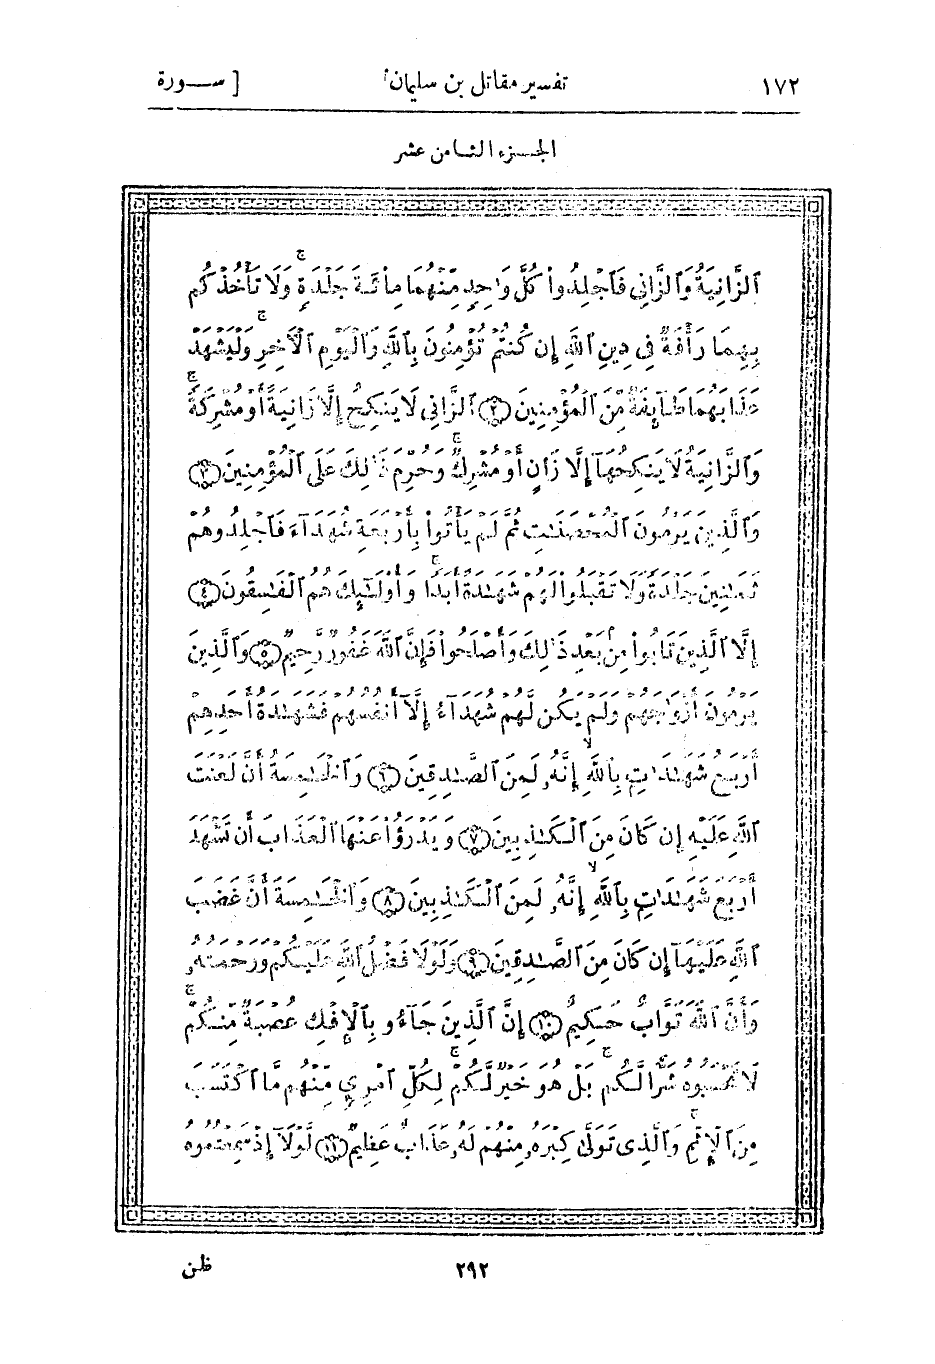 ١٧٢ تفسير مقاتل بن سليمان [ ســـورة
الجــزء الثــامن عشر
ٱلزَّانِيَةُ وَٱلزَّانِى فَٱجْلِدُوا۟ كُلَّ وَٰحِدٍ مِّنْهُمَا مِا۟ئَةَ جَلْدَةٍ ۖ وَلَا تَأْخُذْكُم
بِهِمَا رَأْفَةٌ فِى دِينِ ٱللَّهِ إِن كُنتُمْ تُؤْمِنُونَ بِٱللَّهِ وَٱلْيَوْمِ ٱلْأَخِرِ ۖ وَلْيَشْهَدْ
عَذَابَهُمَا طَآئِفَةٌ مِّنَ ٱلْمُؤْمِنِينَ ﴿٢﴾ ٱلزَّانِى لَا يَنكِحُ إِلَّا زَانِيَةً أَوْ مُشْرِكَةً ۚ
وَٱلزَّانِيَةُ لَا يَنكِحُهَآ إِلَّا زَانٍ أَوْ مُشْرِكٌ ۚ وَحُرِّمَ ذَٰلِكَ عَلَى ٱلْمُؤْمِنِينَ ﴿٣﴾
وَٱلَّذِينَ يَرْمُونَ ٱلْمُحْصَنَٰتِ ثُمَّ لَمْ يَأْتُوا۟ بِأَرْبَعَةِ شُهَدَآءَ فَٱجْلِدُوهُمْ
ثَمَٰنِينَ جَلْدَةً وَلَا تَقْبَلُوا۟ لَهُمْ شَهَٰدَةً أَبَدًا ۚ وَأُو۟لَٰٓئِكَ هُمُ ٱلْفَٰسِقُونَ ﴿٤﴾
إِلَّا ٱلَّذِينَ تَابُوا۟ مِنۢ بَعْدِ ذَٰلِكَ وَأَصْلَحُوا۟ فَإِنَّ ٱللَّهَ غَفُورٌ رَّحِيمٌ ﴿٥﴾ وَٱلَّذِينَ
يَرْمُونَ أَزْوَٰجَهُمْ وَلَمْ يَكُن لَّهُمْ شُهَدَآءُ إِلَّآ أَنفُسُهُمْ فَشَهَٰدَةُ أَحَدِهِمْ
أَرْبَعُ شَهَٰدَٰتٍۭ بِٱللَّهِ ۙ إِنَّهُۥ لَمِنَ ٱلصَّٰدِقِينَ ﴿٦﴾ وَٱلْخَٰمِسَةُ أَنَّ لَعْنَتَ
ٱللَّهِ عَلَيْهِ إِن كَانَ مِنَ ٱلْكَٰذِبِينَ ﴿٧﴾ وَيَدْرَؤُا۟ عَنْهَا ٱلْعَذَابَ أَن تَشْهَدَ
أَرْبَعَ شَهَٰدَٰتٍۭ بِٱللَّهِ ۙ إِنَّهُۥ لَمِنَ ٱلْكَٰذِبِينَ ﴿٨﴾ وَٱلْخَٰمِسَةَ أَنَّ غَضَبَ
ٱللَّهِ عَلَيْهَآ إِن كَانَ مِنَ ٱلصَّٰدِقِينَ ﴿٩﴾ وَلَوْلَا فَضْلُ ٱللَّهِ عَلَيْكُمْ وَرَحْمَتُهُۥ
وَأَنَّ ٱللَّهَ تَوَّابٌ حَكِيمٌ ﴿١٠﴾ إِنَّ ٱلَّذِينَ جَآءُو بِٱلْإِفْكِ عُصْبَةٌ مِّنكُمْ ۚ
لَا تَحْسَبُوهُ شَرًّا لَّكُم ۖ بَلْ هُوَ خَيْرٌ لَّكُمْ ۚ لِكُلِّ ٱمْرِئٍ مِّنْهُم مَّا ٱكْتَسَبَ
مِنَ ٱلْإِثْمِ ۚ وَٱلَّذِى تَوَلَّىٰ كِبْرَهُۥ مِنْهُمْ لَهُۥ عَذَابٌ عَظِيمٌ ﴿١١﴾ لَّوْلَآ إِذْ سَمِعْتُمُوهُ
٢٩٢ ظن